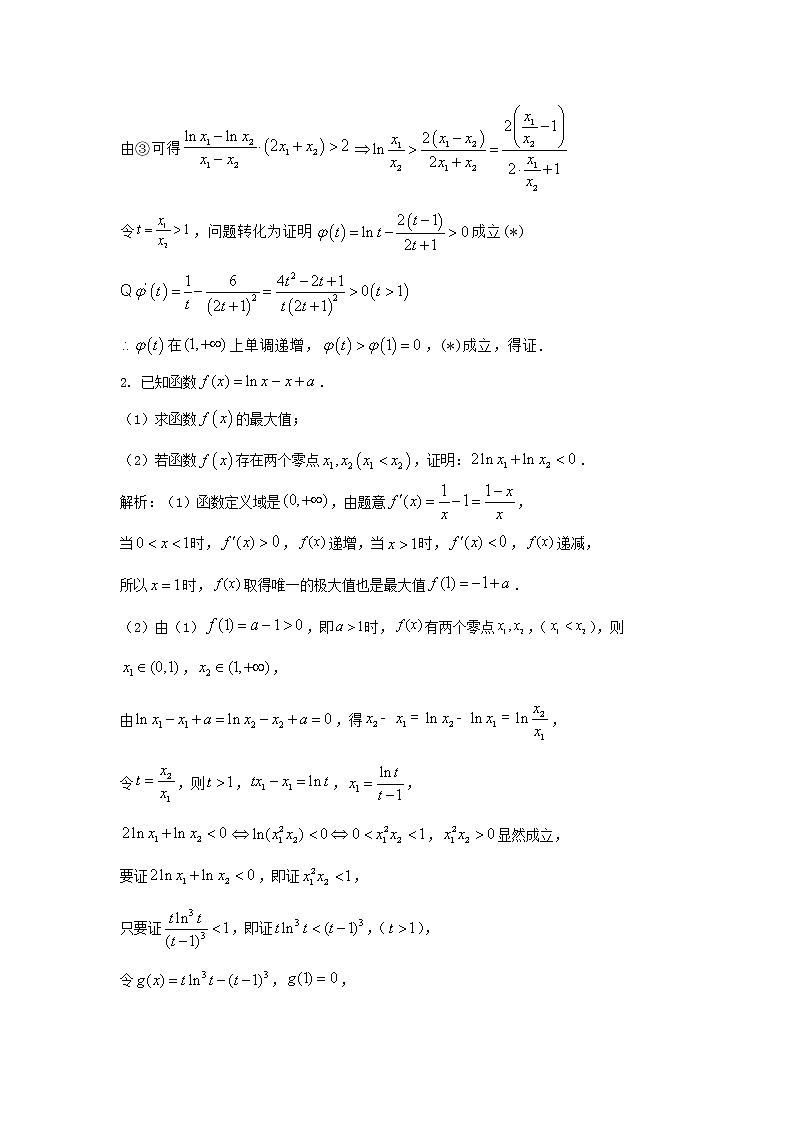 由③可得 $\frac{\ln x_1-\ln x_2}{x_1-x_2}\cdot(2x_1+x_2)>2 \Rightarrow \ln\frac{x_1}{x_2}>\frac{2(x_1-x_2)}{2x_1+x_2}=\frac{2\left(\frac{x_1}{x_2}-1\right)}{2\cdot\frac{x_1}{x_2}+1}$
令 $t=\frac{x_1}{x_2}>1$，问题转化为证明 $\varphi(t)=\ln t-\frac{2(t-1)}{2t+1}>0$ 成立(*)
Q $\varphi'(t)=\frac{1}{t}-\frac{6}{(2t+1)^2}=\frac{4t^2-2t+1}{t(2t+1)^2}>0(t>1)$
∴ $\varphi(t)$ 在 $(1,+\infty)$ 上单调递增， $\varphi(t)>\varphi(1)=0$，(*)成立，得证．
2. 已知函数 $f(x)=\ln x-x+a$．
（1）求函数 $f(x)$ 的最大值；
（2）若函数 $f(x)$ 存在两个零点 $x_1,x_2(x_1<x_2)$，证明：$2\ln x_1+\ln x_2<0$．
解析：（1）函数定义域是 $(0,+\infty)$，由题意 $f'(x)=\frac{1}{x}-1=\frac{1-x}{x}$，
当 $0<x<1$ 时，$f'(x)>0$，$f(x)$ 递增，当 $x>1$ 时，$f'(x)<0$，$f(x)$ 递减，
所以 $x=1$ 时，$f(x)$ 取得唯一的极大值也是最大值 $f(1)=-1+a$．
（2）由（1）$f(1)=a-1>0$，即 $a>1$ 时，$f(x)$ 有两个零点 $x_1,x_2$，（$x_1<x_2$），则
$x_1\in(0,1)$，$x_2\in(1,+\infty)$，
由 $\ln x_1-x_1+a=\ln x_2-x_2+a=0$，得 $x_2-x_1=\ln x_2-\ln x_1=\ln\frac{x_2}{x_1}$，
令 $t=\frac{x_2}{x_1}$，则 $t>1$，$tx_1-x_1=\ln t$，$x_1=\frac{\ln t}{t-1}$，
$2\ln x_1+\ln x_2<0\Leftrightarrow\ln(x_1^2x_2)<0\Leftrightarrow 0<x_1^2x_2<1$，$x_1^2x_2>0$ 显然成立，
要证 $2\ln x_1+\ln x_2<0$，即证 $x_1^2x_2<1$，
只要证 $\frac{t\ln^3 t}{(t-1)^3}<1$，即证 $t\ln^3 t<(t-1)^3$，（$t>1$），
令 $g(x)=t\ln^3 t-(t-1)^3$，$g(1)=0$，